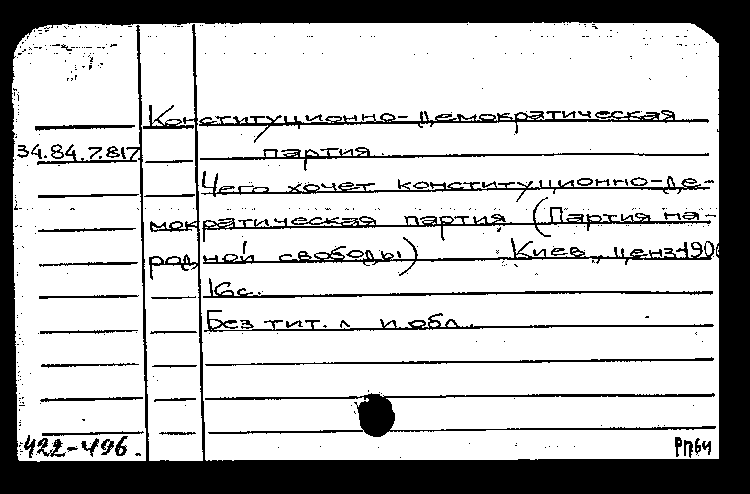 Конституционно-демократическая
34.84.7.817
партия
Чего хочет конституционно-де-
мократическая партия (Партия на-
родной свободы) Киев, ценз. 1906
16с.
Без тит. л. и обл.
422-496.
РПБ4